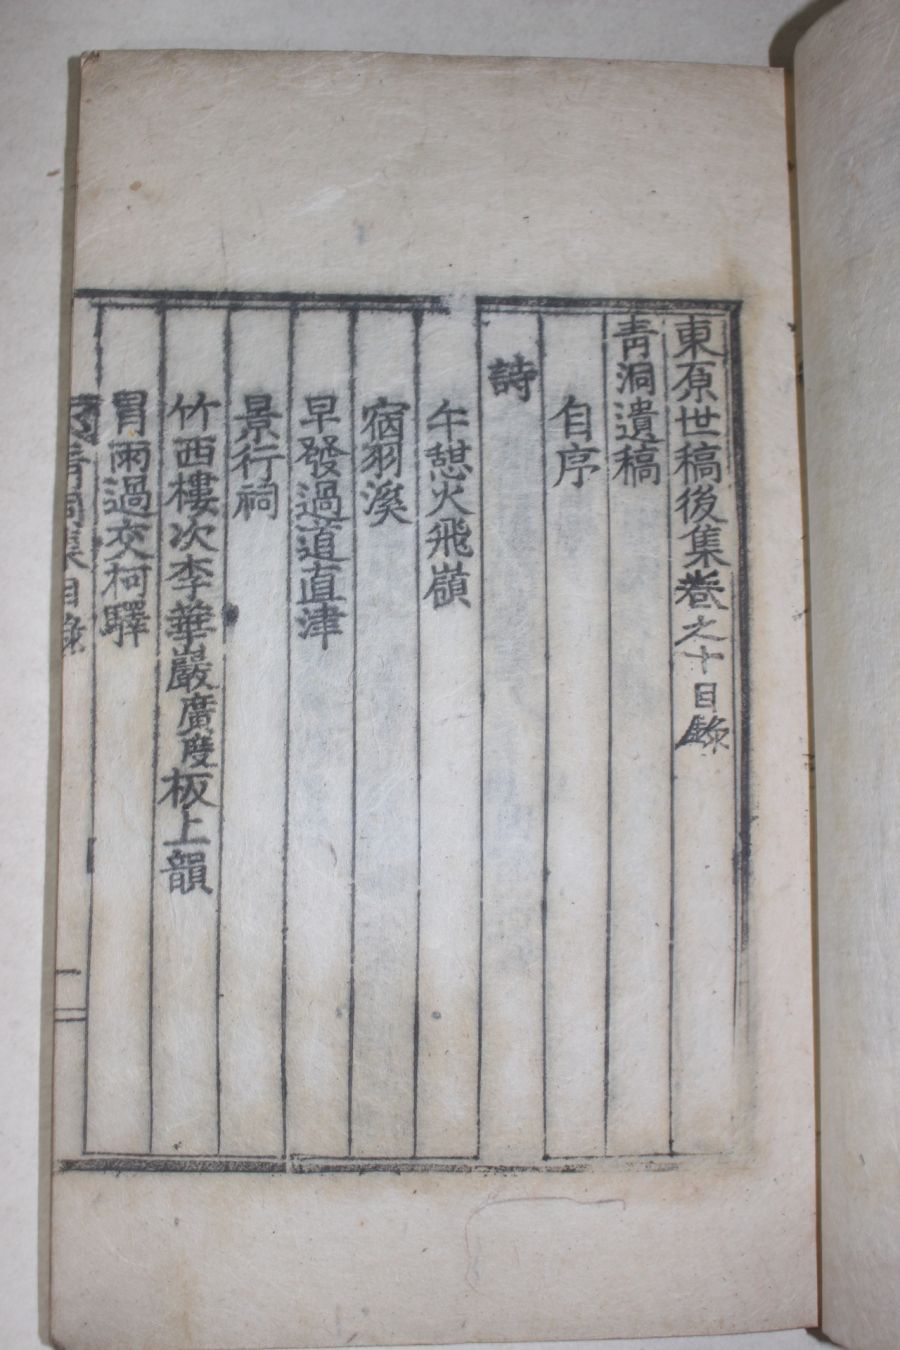 東原世稿後集卷之十目錄
靑洞遺稿
自序
詩
午憇火飛嶺
宿羽溪
早發過道直津
景行祠
竹西樓次李華巖廣度板上韻
冒雨過交柯驛
靑洞集目錄
一